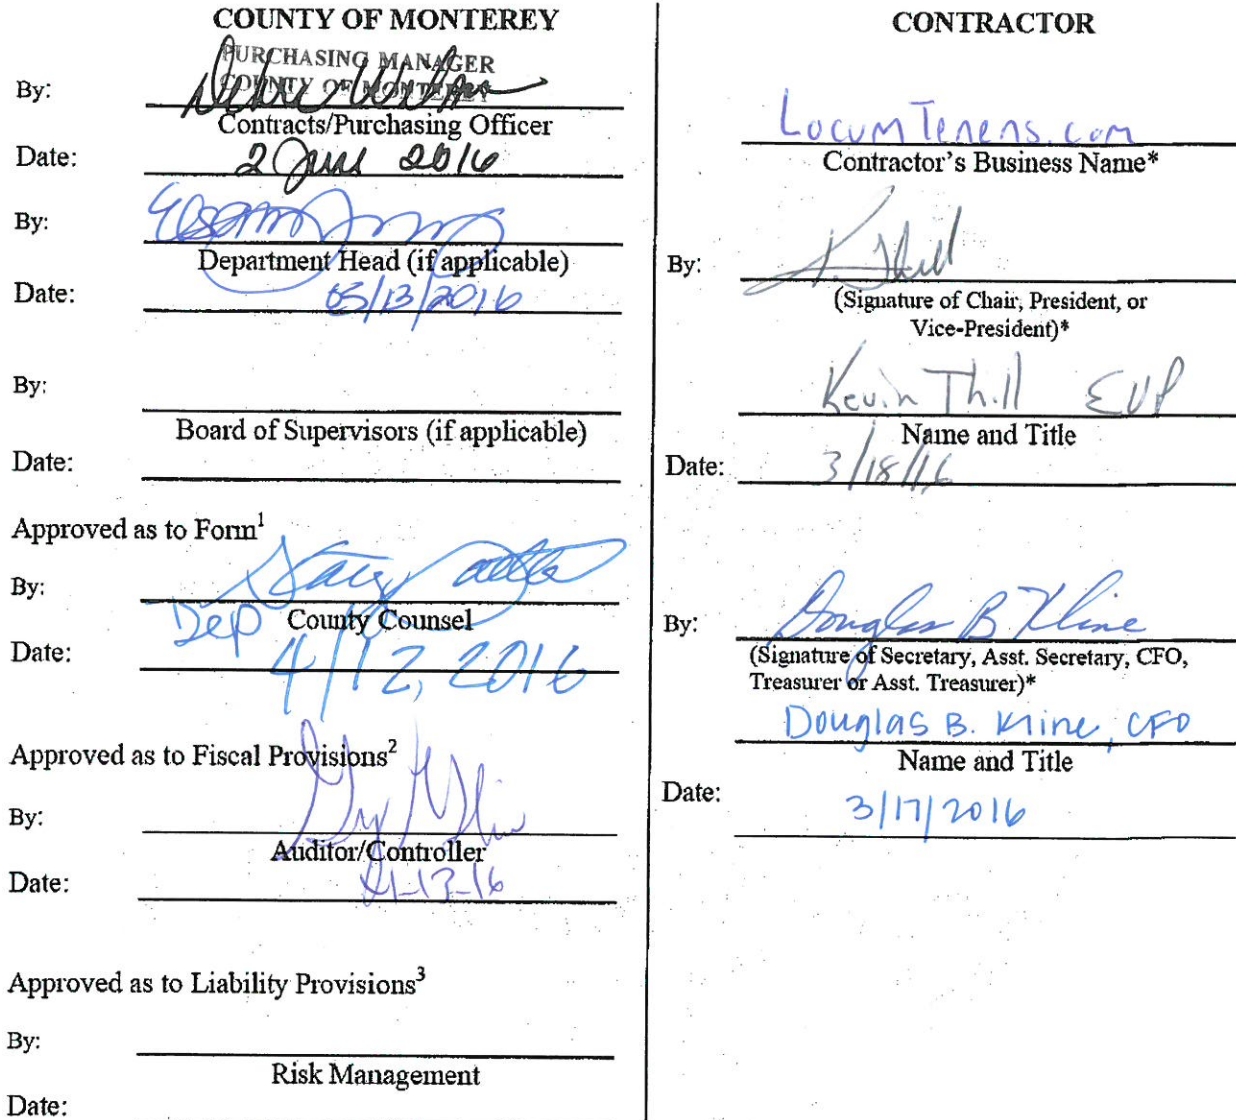 COUNTY OF MONTEREY
PURCHASING MANAGER
COUNTY OF MONTEREY
By:
Contracts/Purchasing Officer
Date: 2 June 2016
By:
Department Head (if applicable)
Date: 05/13/2016
By:
Board of Supervisors (if applicable)
Date:
Approved as to Form¹
By:
Dep County Counsel
Date: 4/12, 2016
Approved as to Fiscal Provisions²
By:
Auditor/Controller
Date: 4-13-16
Approved as to Liability Provisions³
By:
Risk Management
Date:
CONTRACTOR
LocumTenens.com
Contractor's Business Name*
By: K. Thill
(Signature of Chair, President, or
Vice-President)*
Kevin Thill EVP
Name and Title
Date: 3/18/16
By: Douglas B Kline
(Signature of Secretary, Asst. Secretary, CFO,
Treasurer or Asst. Treasurer)*
Douglas B. Kline, CFO
Name and Title
Date: 3/17/2016